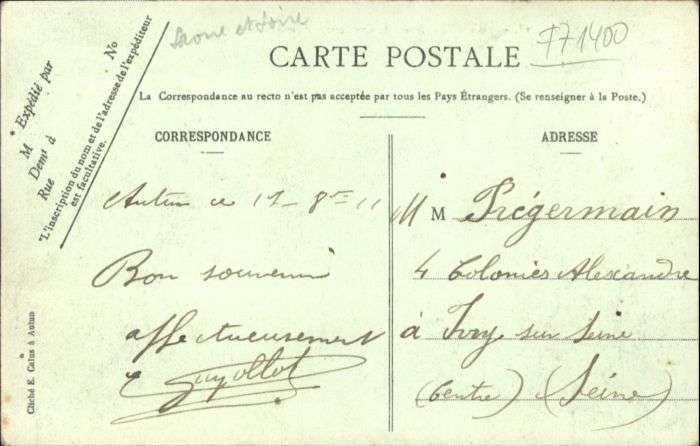 Saone et Loire
F71400
CARTE POSTALE
La Correspondance au recto n'est pas acceptée par tous les Pays Étrangers. (Se renseigner à la Poste.)
* Expédié par
M
Demt à
Rue No
*L'inscription du nom et de l'adresse de l'expéditeur
est facultative.
CORRESPONDANCE
Autun ce 8re 11
Bon souvenir
affectueusement
Guyollot
ADRESSE
M M Prégermain
4 Colonies Alexandre
à Ivry sur Seine
(Centre) (Seine)
Cliché E. Calus à Autun